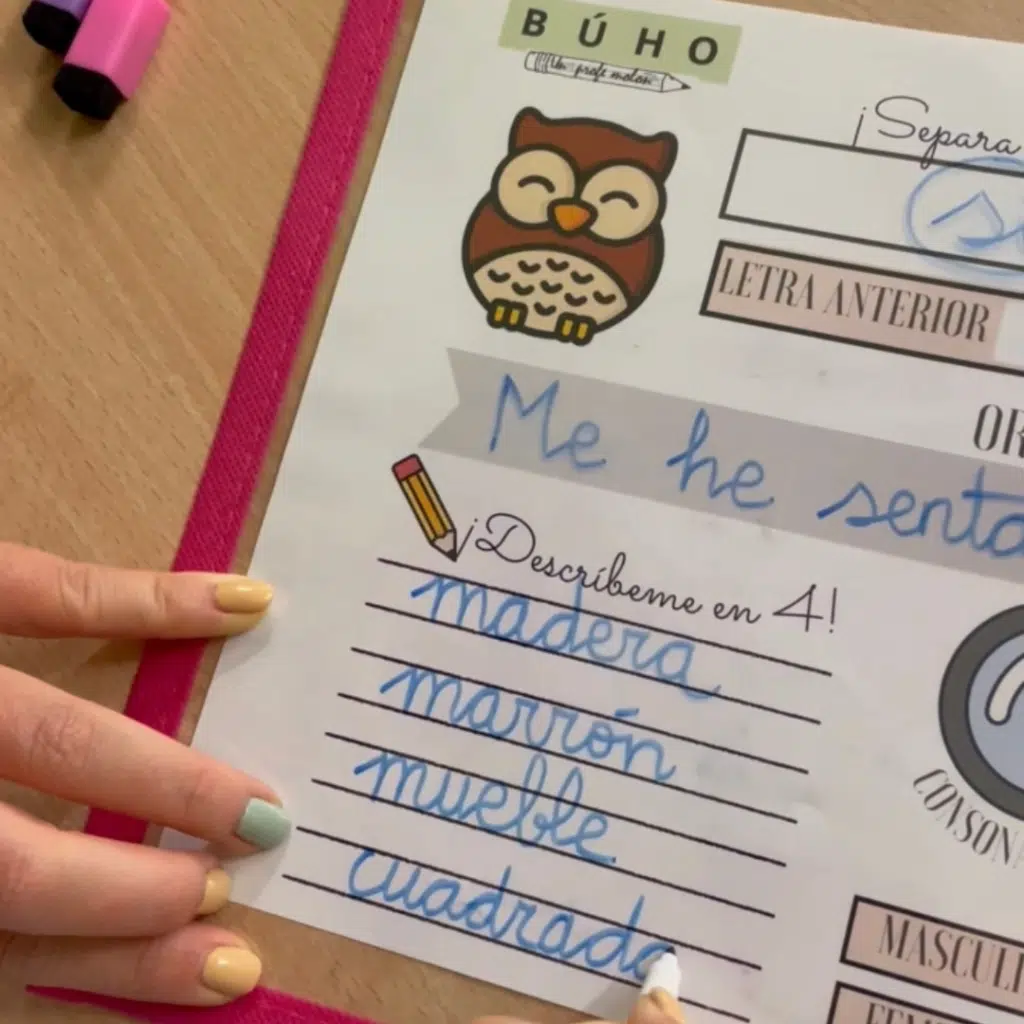 BÚHO
Un profe molón
¡Separa
LETRA ANTERIOR
Me he senta
¡Descríbeme en 4!
madera
marrón
mueble
cuadrado
CONSON
MASCULI